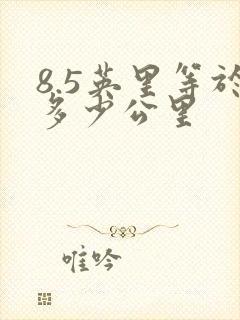 8.5英里等於
多少公里
唯吟